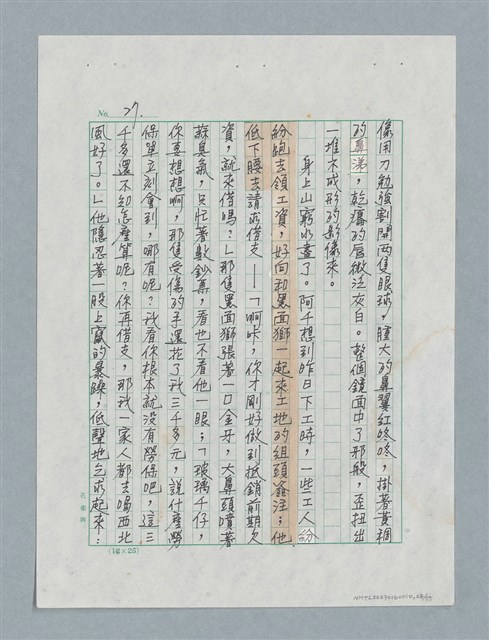 No. 27.
像用刀勉強割開兩隻眼球，腫大的鼻翼紅咚咚，掛著黃稠
的鼻涕，乾癟的唇微泛灰白。整個鏡面中了邪般，歪扭出
一堆不成形的影像來。
身上山窮水盡了。阿千想到昨日下工時，一些工人紛
紛跑去領工資，好向和黑面獅一起來工地的組頭簽注；他
低下腰去請求借支——「啊咔，你才剛好做到抵銷前期欠
資，就來借嗎？」那隻黑面獅張著一口金牙，大鼻頭噴著
蒜臭氣，只忙著數鈔票，看也不看他一眼；「玻璃千仔，
你要想想啊，那隻受傷的手還花了我三千多元，說什麼勞
保單立刻會到，哪有呢？我看你根本就沒有勞保吧，這三
千多還不知怎麼算呢？你再借支，那我一家人都去喝西北
風好了。」他隱忍著一股上竄的暴躁，低聲地乞求起來：
(12×25)